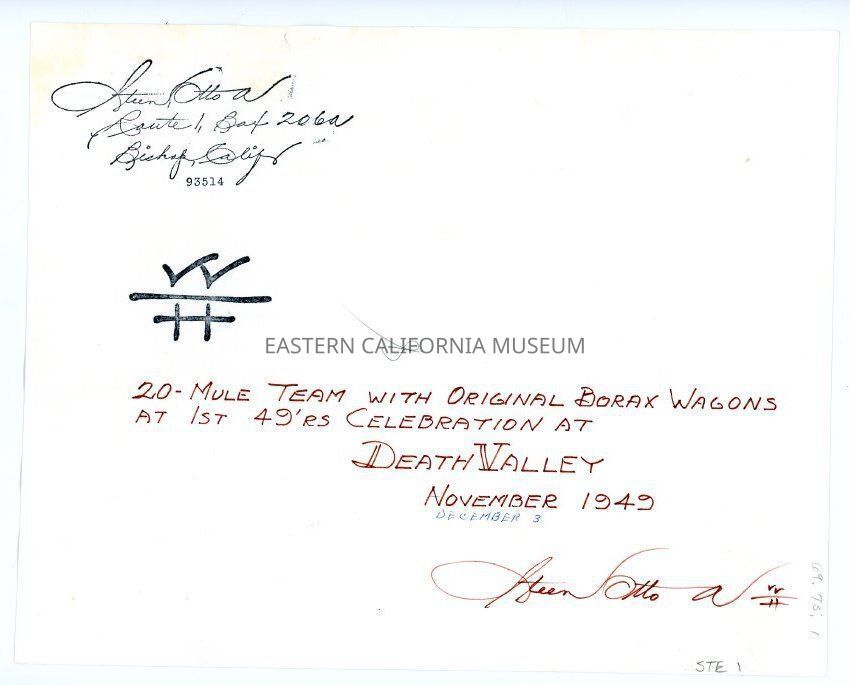 Steen, Otto A
Route 1, Box 206a
Bishop, Calif
93514
EASTERN CALIFORNIA MUSEUM
20-MULE TEAM WITH ORIGINAL BORAX WAGONS
AT 1ST 49'RS CELEBRATION AT
DEATH VALLEY
NOVEMBER 1949
DECEMBER 3
Steen Otto A
STE 1